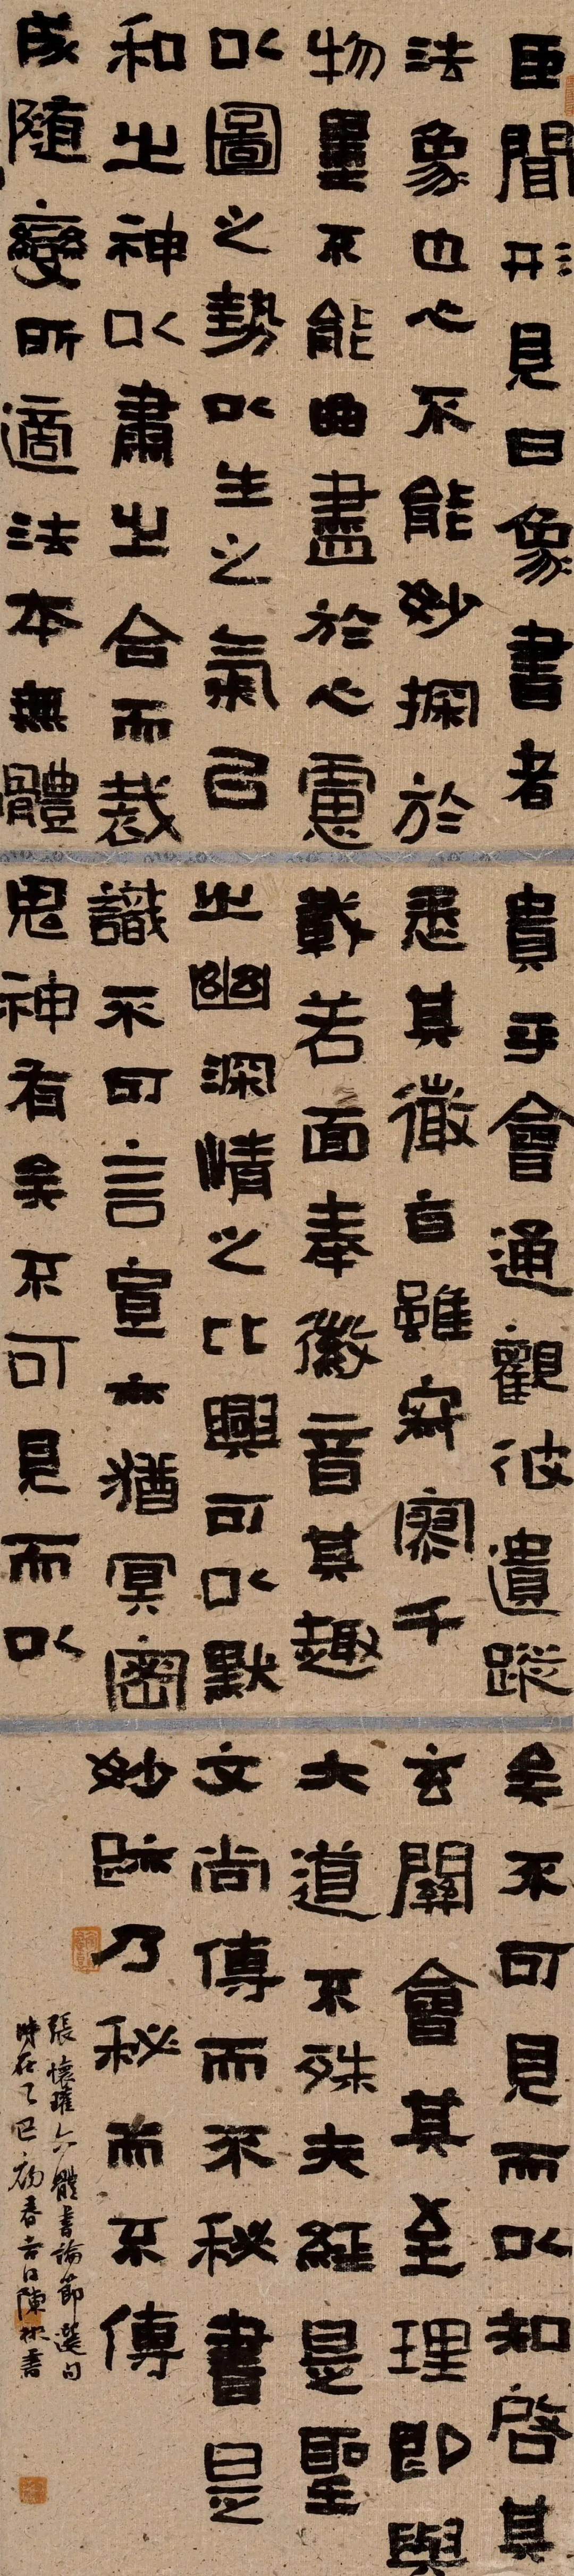 臣聞形見曰象書者
法象也心不能妙探於
物墨不能曲盡於心慮
以圖之勢以生之氣㠯
和之神以肅之合而裁
成隨變所適法本無體
貴乎會通觀彼遺蹤
悉其微旨雖寂寥千
載若面奉徽音其趣
之幽深情之比興可以默
識不可言宣亦猶冥密
鬼神有矣不可見而以
矣不可見而以知啓其
玄關會其至理即與
大道不殊夫經是聖
文尚傳而不秘書是
妙跡乃秘而不傳
張懷瓘六體書論節選句
時在乙巳初春吉日陳書